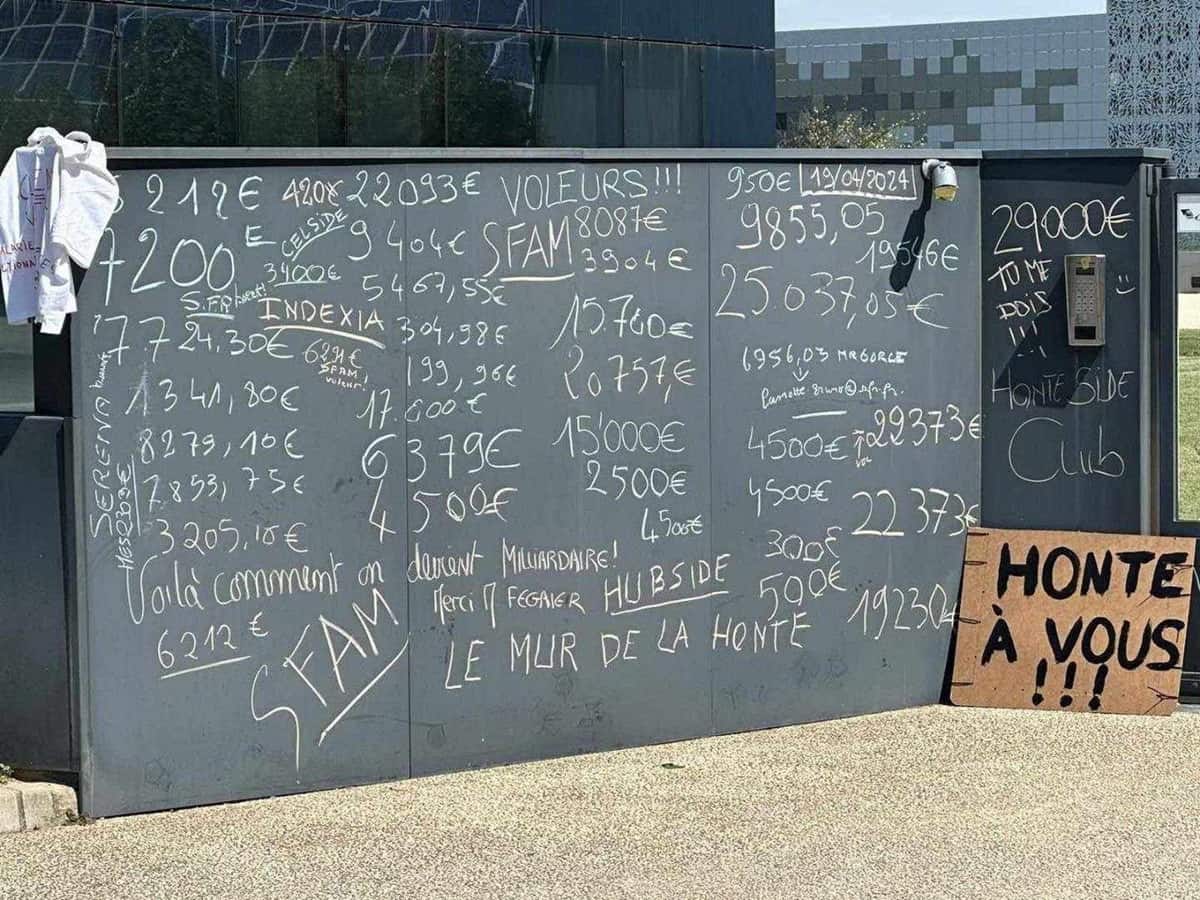 212€
420€
22093€
VOLEURS!!!
950€
19/04/2024
7200€
CELSIDE
9404€
SFAM
8087€
9855,05
3400€
3904€
19546€
S.F.R
5467,55€
INDEXIA
25.037,05€
7724,30€
304,98€
15.760€
629€
SFAM
voleur!
199,96€
20757,€
6956,03
1341,80€
17600€
15'000€
4500€
22373€
8279,10€
6379€
2500€
SERENA
7853,75€
4500€
4500€
22373€
3205,10€
4500€
300€
Voilà comment on devient MILLIARDAIRE!
500€
Merci M FEGAIER
HUBSIDE
19230€
6212€
SFAM
LE MUR DE LA HONTE
29000€
TU ME
DOIS
!!!
HONTE SIDE
Club
HONTE
À VOUS
!!!